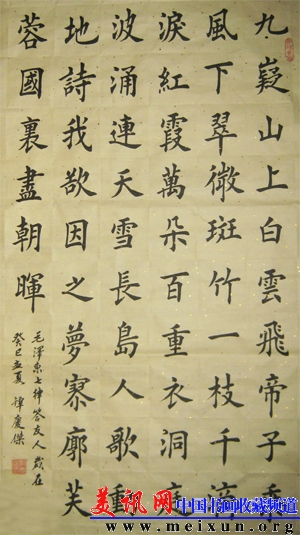 九嶷山上白雲飛帝子乘
風下翠微斑竹一枝千滴
淚紅霞萬朵百重衣洞庭
波涌連天雪長島人歌動
地詩我欲因之夢寥廓芙
蓉國裏盡朝暉
毛澤東七律答友人 歲在
癸巳孟夏 慶傑
美讯网 中国书画收藏频道
www.meixun.org